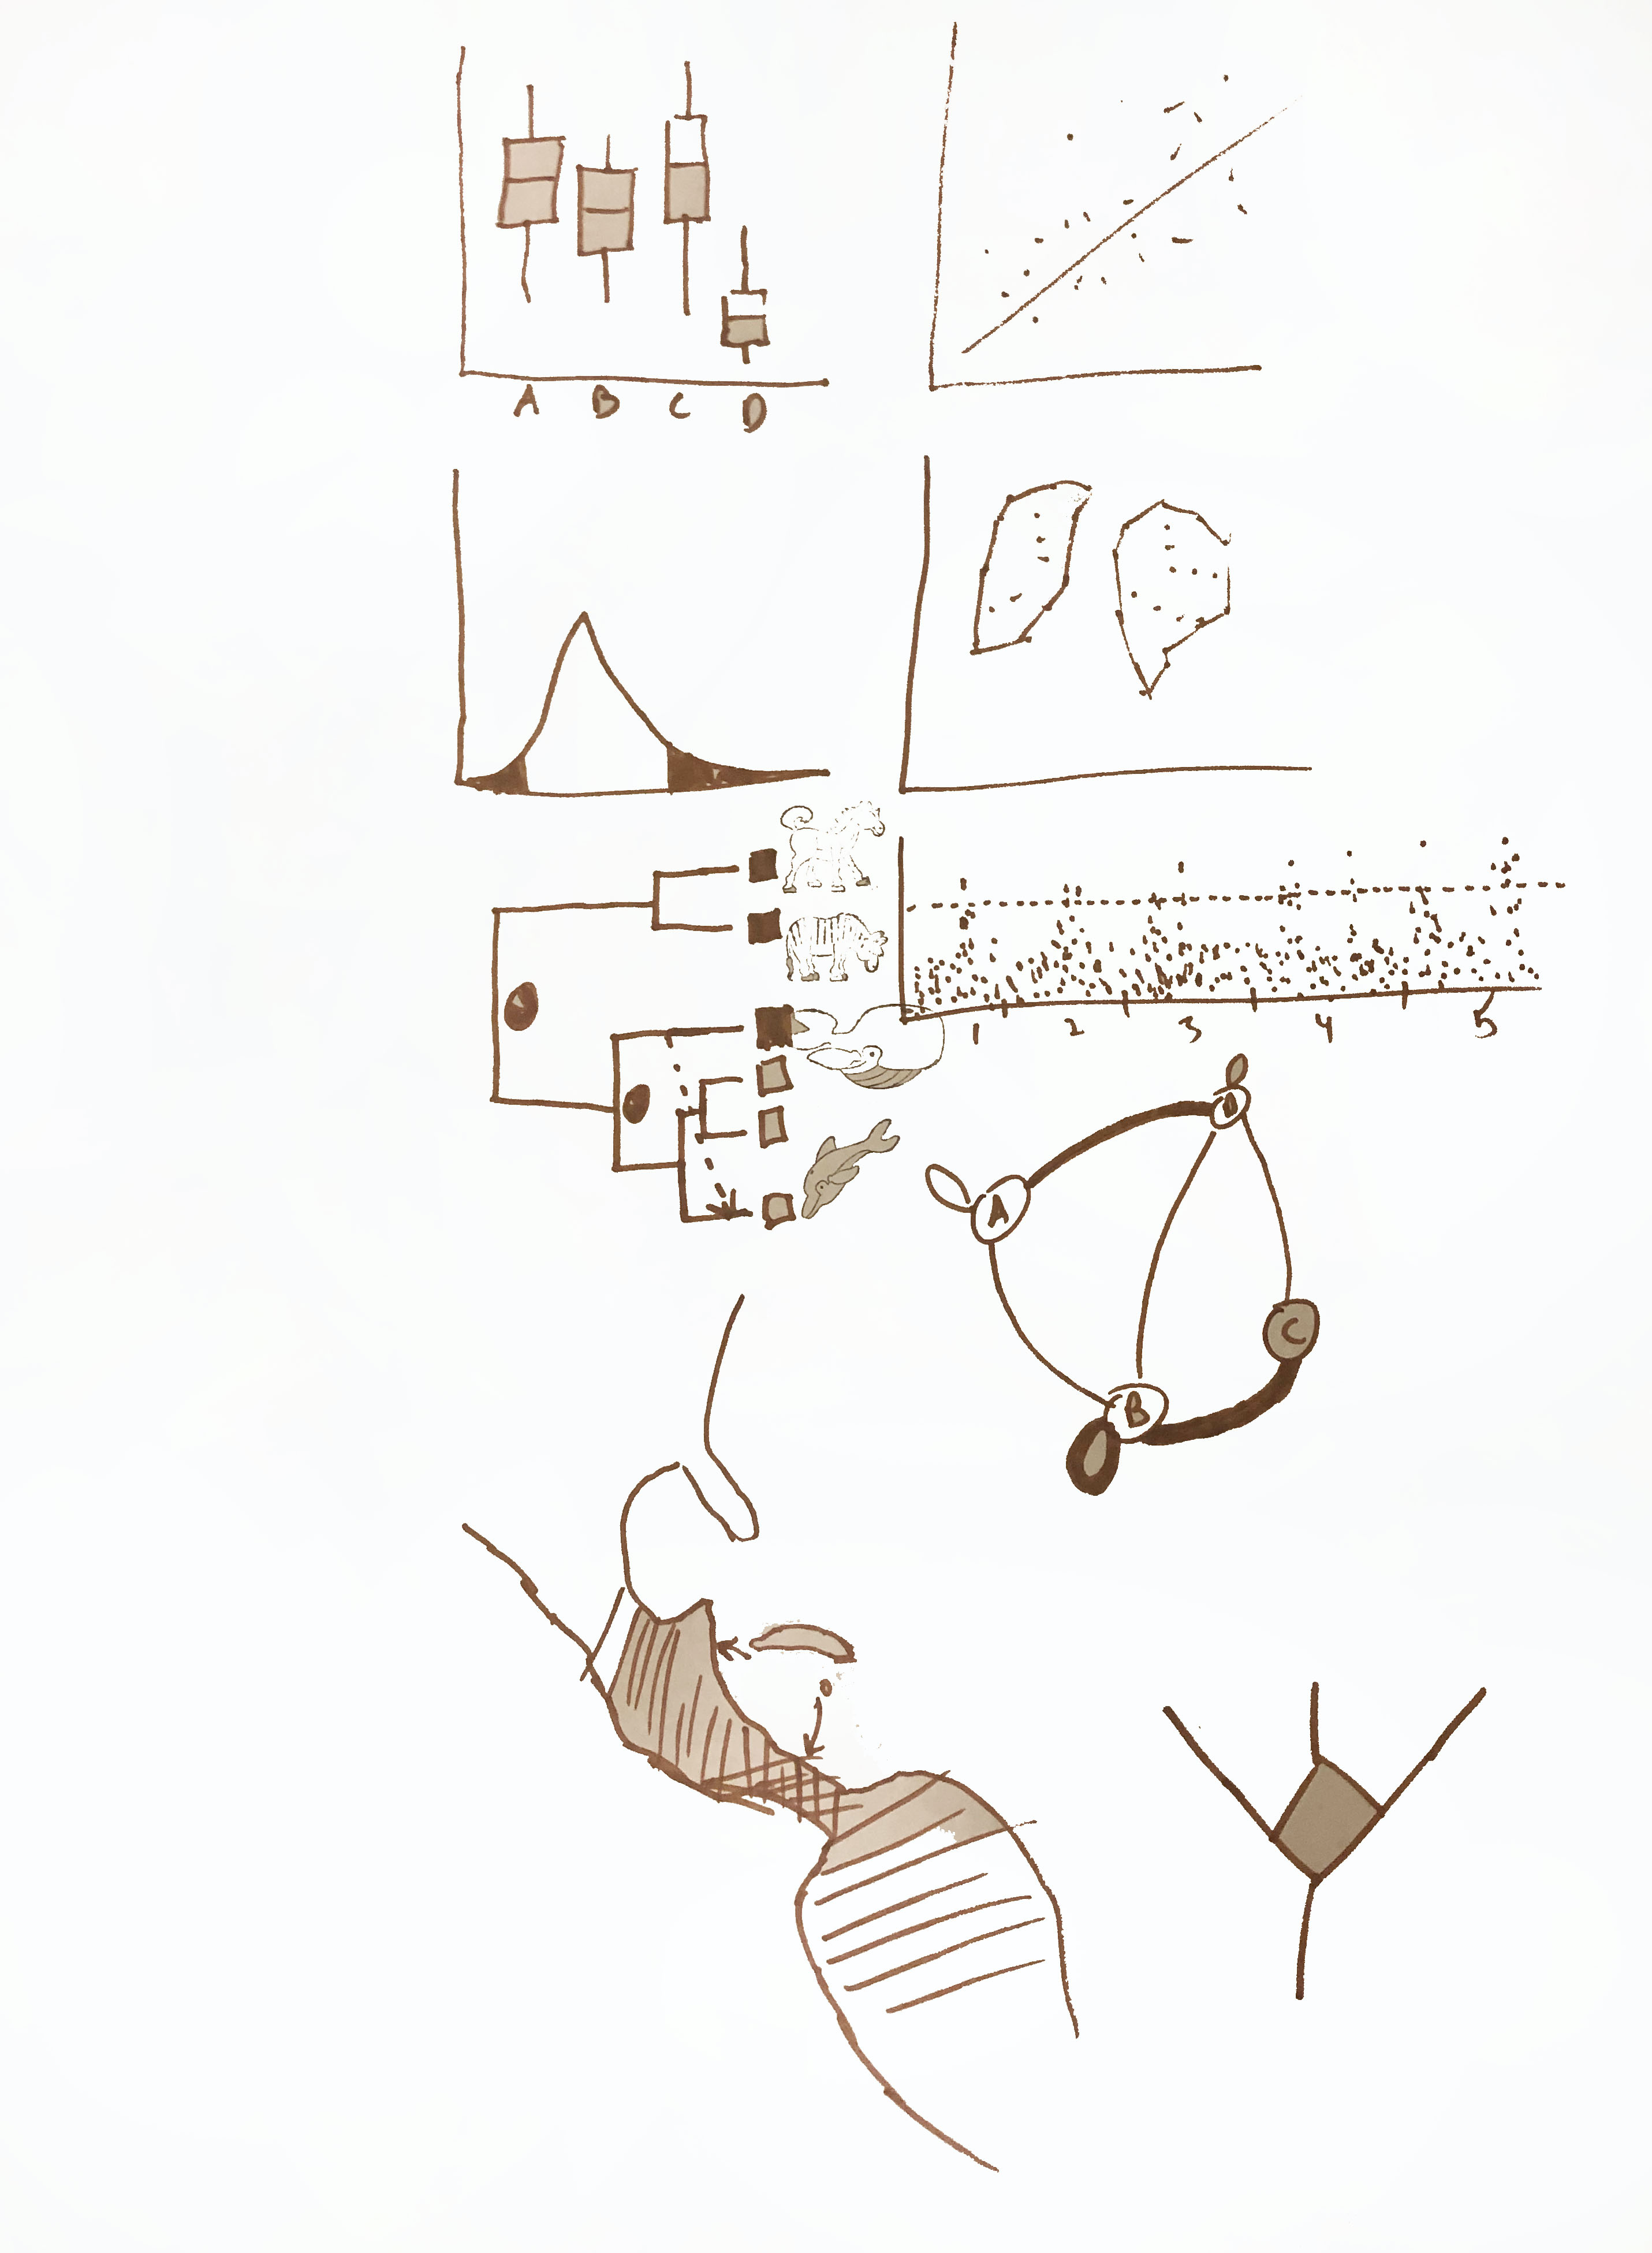 A B C D
1 2 3 4 5
D
A
C
B